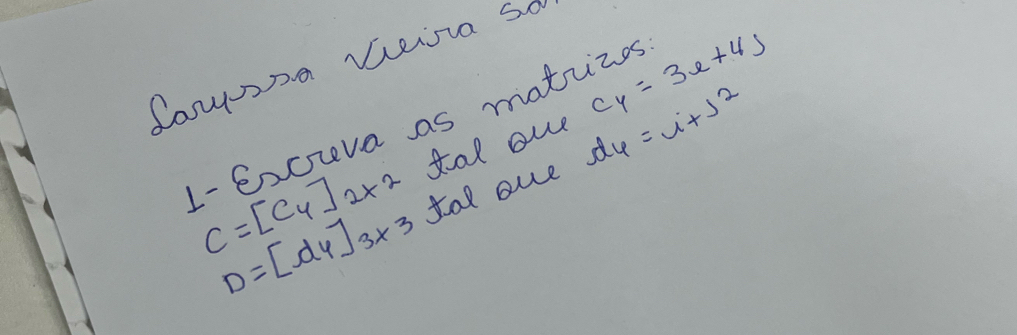 Laryssa Vieira
1- Escreva as matrizes:
C=[Cij]2x2 tal que cij = 3i+4j
D=[dij]3x3 tal que dij = i+j²